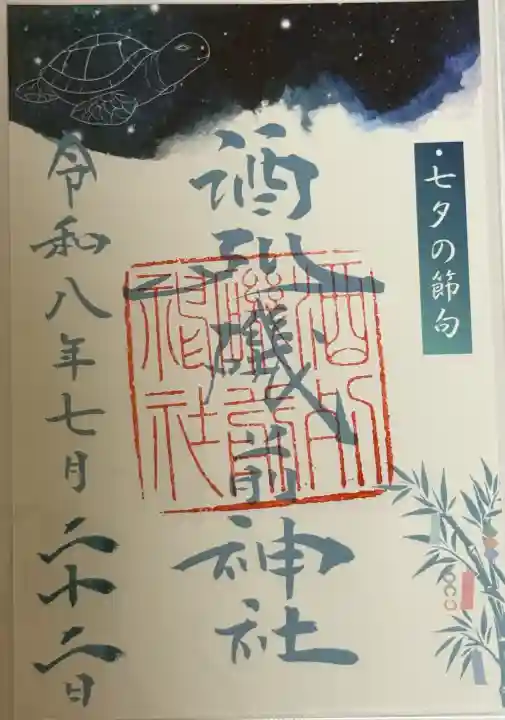 ・七夕の節句
酒列磯前神社
酒列磯前神社
令和八年七月二十二日